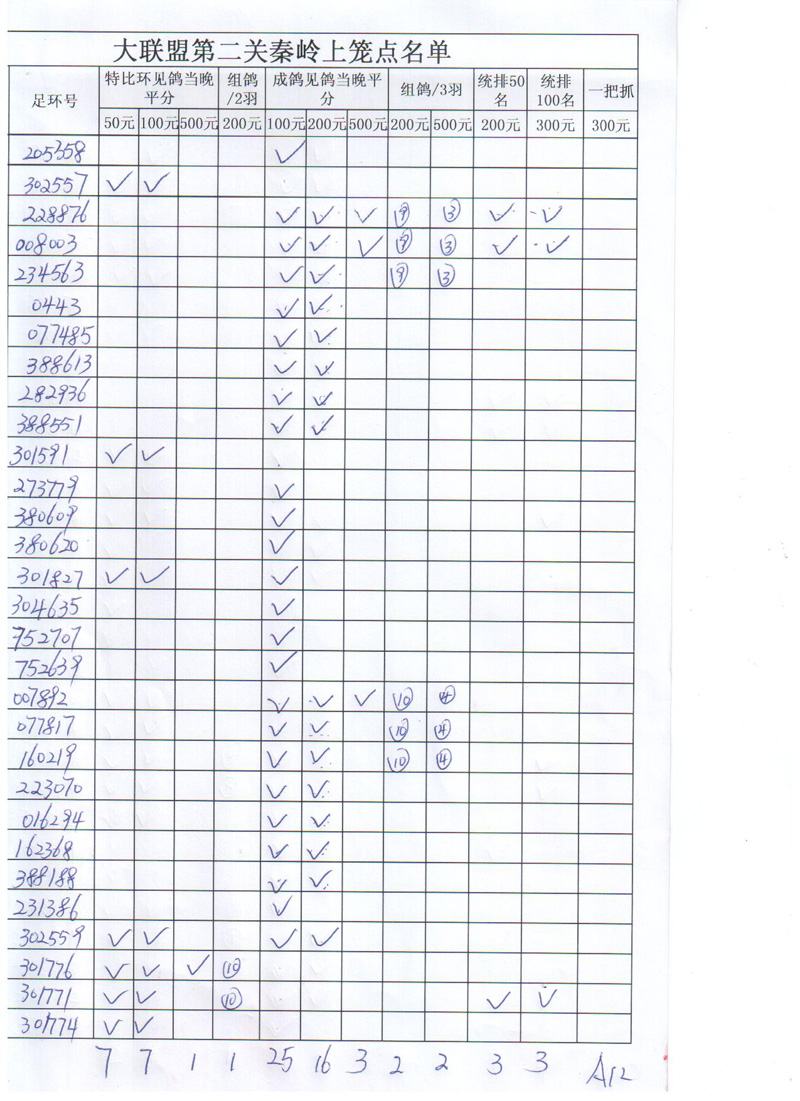 大联盟第二关秦岭上笼点名单
足环号 特比环见鸽当晚平分 组鸽/2羽 成鸽见鸽当晚平分 组鸽/3羽 统排50名 统排100名 一把抓
50元 100元 500元 200元 100元 200元 500元 200元 500元 200元 300元 300元
205358 ✓
302557 ✓ ✓
228876 ✓ ✓ ✓ ⑨ ③ ✓ ✓
008003 ✓ ✓ ✓ ⑨ ③ ✓ ✓
234563 ✓ ✓ ⑨ ③
0443 ✓ ✓
077485 ✓ ✓
388613 ✓ ✓
282936 ✓ ✓
388551 ✓ ✓
301591 ✓ ✓
273779 ✓
380609 ✓
380620 ✓
301827 ✓ ✓ ✓
304635 ✓
752707 ✓
752639 ✓
007892 ✓ ✓ ✓ ⑩ ④
077817 ✓ ✓ ⑩ ④
160219 ✓ ✓ ⑩ ④
223070 ✓ ✓
016294 ✓ ✓
162368 ✓ ✓
388188 ✓ ✓
231386 ✓
302559 ✓ ✓ ✓ ✓
301776 ✓ ✓ ✓ ⑩
301771 ✓ ✓ ⑩ ✓ ✓
301774 ✓ ✓
7 7 1 1 25 16 3 2 2 3 3 A12